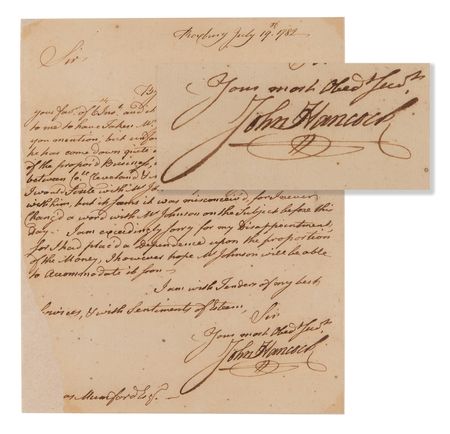 Roxbury July 19th 1782
Sir
your favr. of
to me to have taken Mr.
you mention, but
he has come down quite
of the propos'd Business,
between Co. Cleveland &
I want Settle with Mr. Jo
with him, but it seems it was misconceiv'd, for I never
Chang'd a word with Mr Johnson on the Subject before this
Day. I am exceedingly sorry for my Disappointment
for I had plac'd a Dependence upon the proportion
of the Money, I however hope Mr Johnson will be able
to Accommodate it soon
I am with Tenders of my best
Services, & with Sentiments of Esteem,
Sir
Your most Obedt. Servt.
John Hancock
as Mumford Esq.
Your most Obedt. Servt.
John Hancock